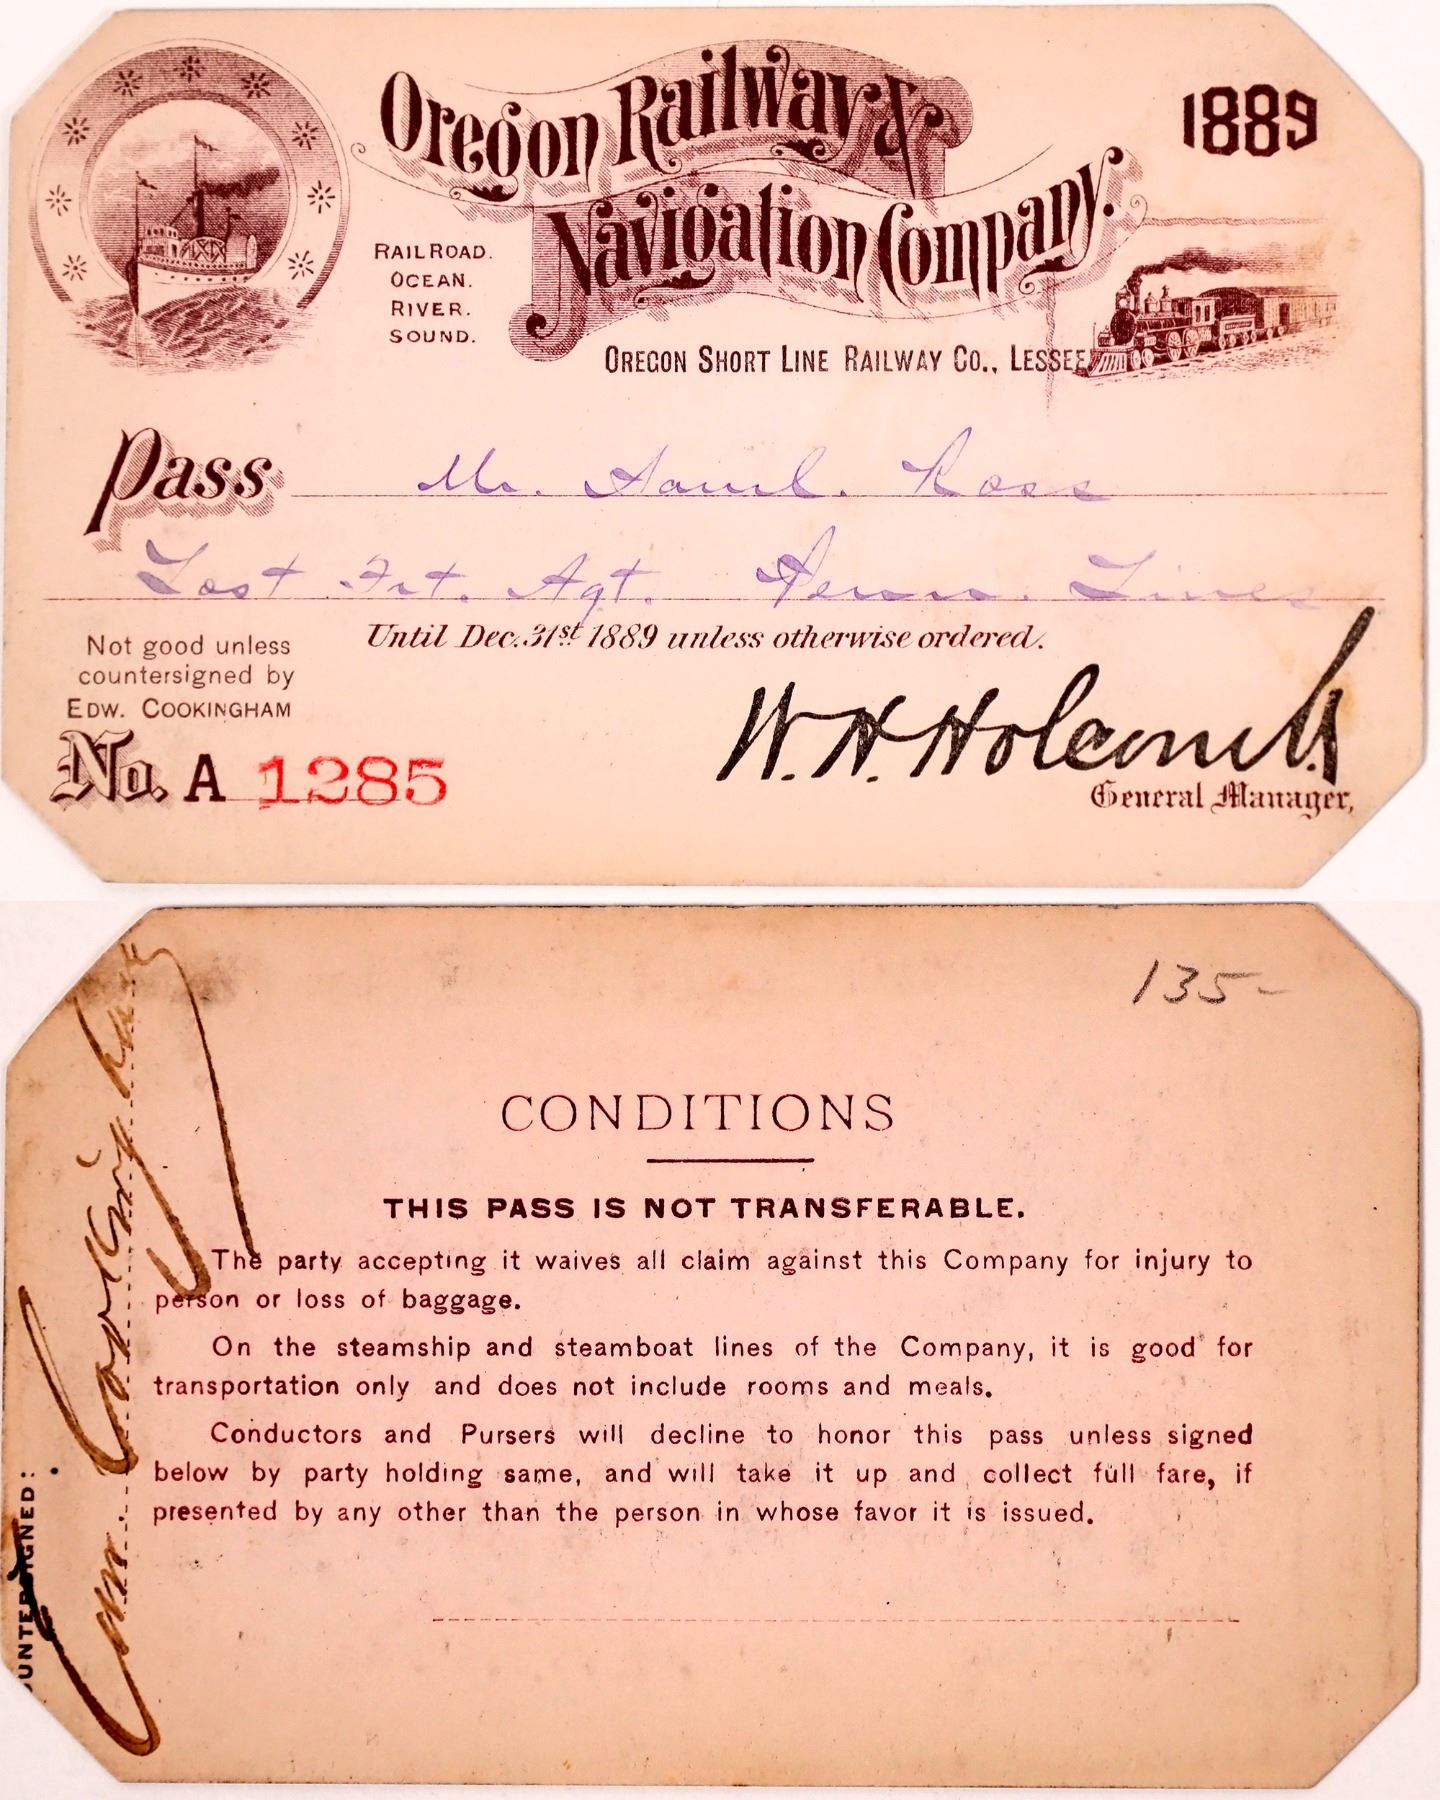 Oregon Railway &
Navigation Company.
1889
RAIL ROAD.
OCEAN.
RIVER.
SOUND.
OREGON SHORT LINE RAILWAY CO., LESSEE
Pass Mr. Saml. Ross
Frt. Agt. Penn. Lines
Until Dec. 31st 1889 unless otherwise ordered.
Not good unless
countersigned by
EDW. COOKINGHAM
No. A 1285
W. H. Holcomb
General Manager,
135-
CONDITIONS
THIS PASS IS NOT TRANSFERABLE.
The party accepting it waives all claim against this Company for injury to
person or loss of baggage.
On the steamship and steamboat lines of the Company, it is good for
transportation only and does not include rooms and meals.
Conductors and Pursers will decline to honor this pass unless signed
below by party holding same, and will take it up and collect full fare, if
presented by any other than the person in whose favor it is issued.
OUNTERSIGNED:
Cookingham